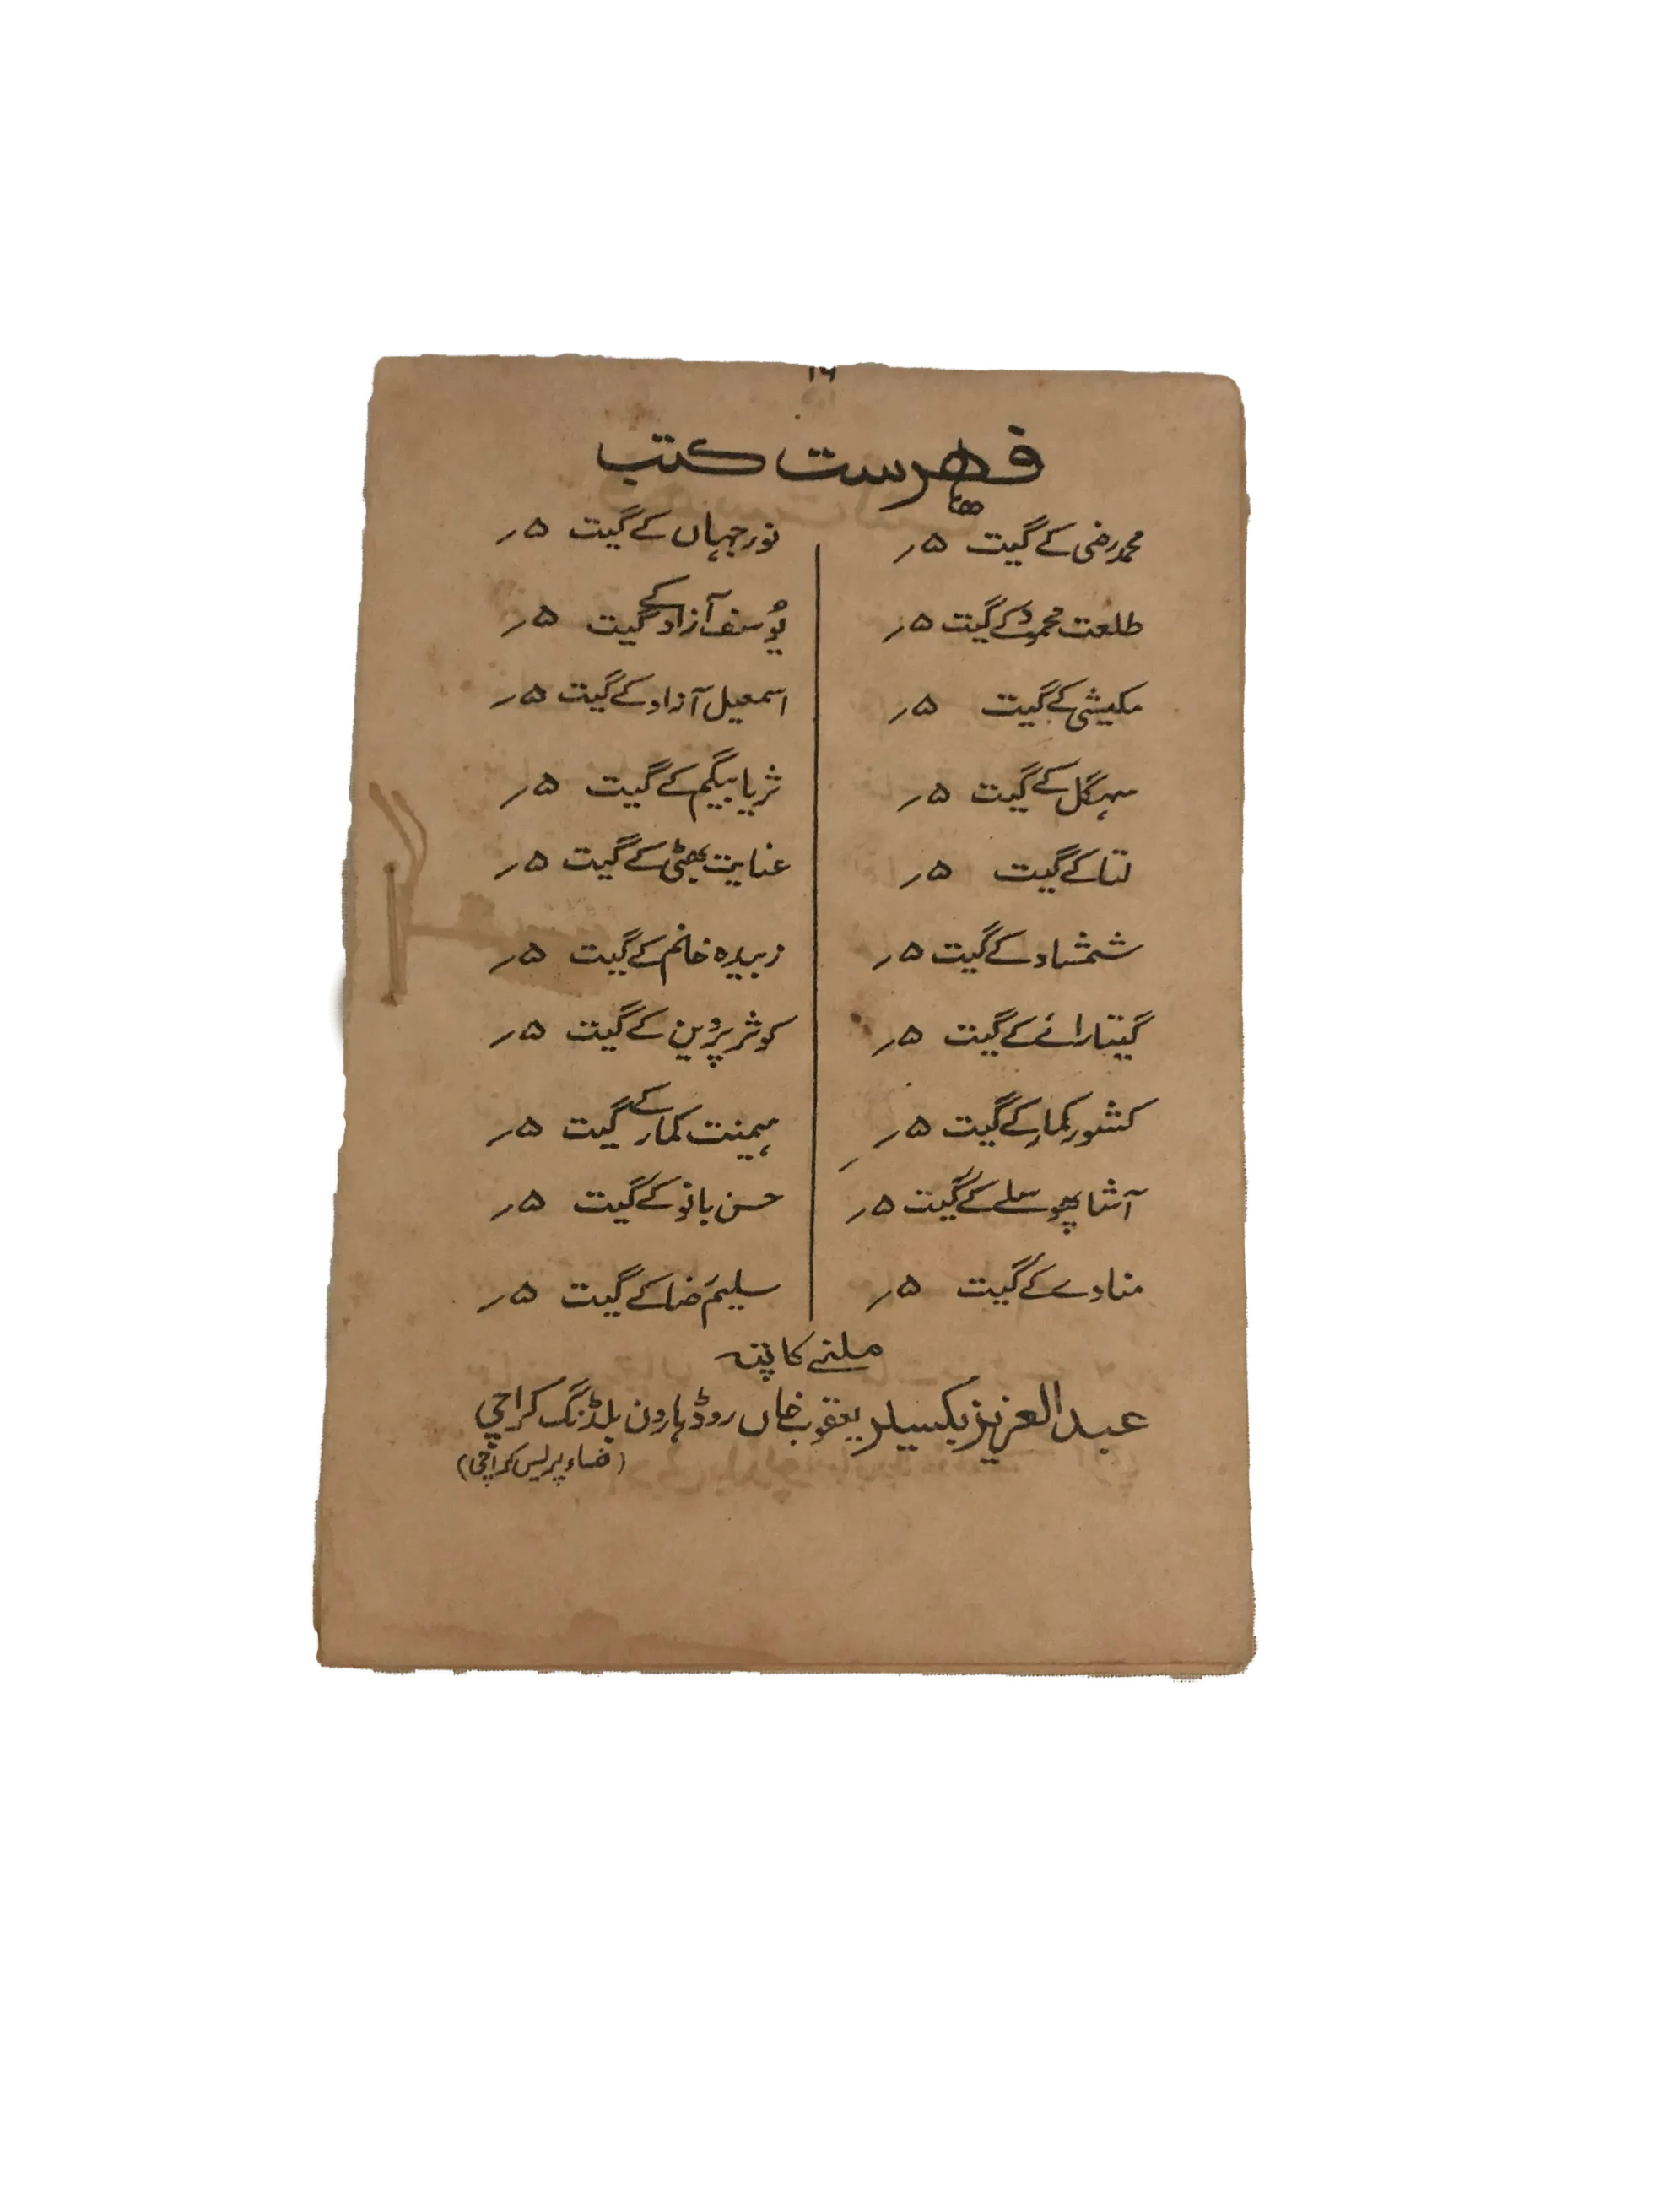 ۱۶
فہرست کتب
محمد رفی کے گیت ۵؍
طلعت محمود کے گیت ۵؍
مکیشی کے گیت ۵؍
سہگل کے گیت ۵؍
لتا کے گیت ۵؍
شمشاد کے گیت ۵؍
گیتا رائے کے گیت ۵؍
کشور کمار کے گیت ۵؍
آشا بھوسلے کے گیت ۵؍
منا دے کے گیت ۵؍
نور جہاں کے گیت ۵؍
یُوسف آزاد کے گیت ۵؍
اسمعیل آزاد کے گیت ۵؍
ثریا بیگم کے گیت ۵؍
عنایت بھٹی کے گیت ۵؍
زبیدہ خانم کے گیت ۵؍
کوثر پروین کے گیت ۵؍
ہیمنت کمار کے گیت ۵؍
حسن بانو کے گیت ۵؍
سلیم رضا کے گیت ۵؍
ملنے کا پتہ
عبدالعزیز بکسیلر یعقوب خاں روڈ ہارون بلڈنگ کراچی
(ضیاء پریس کراچی)